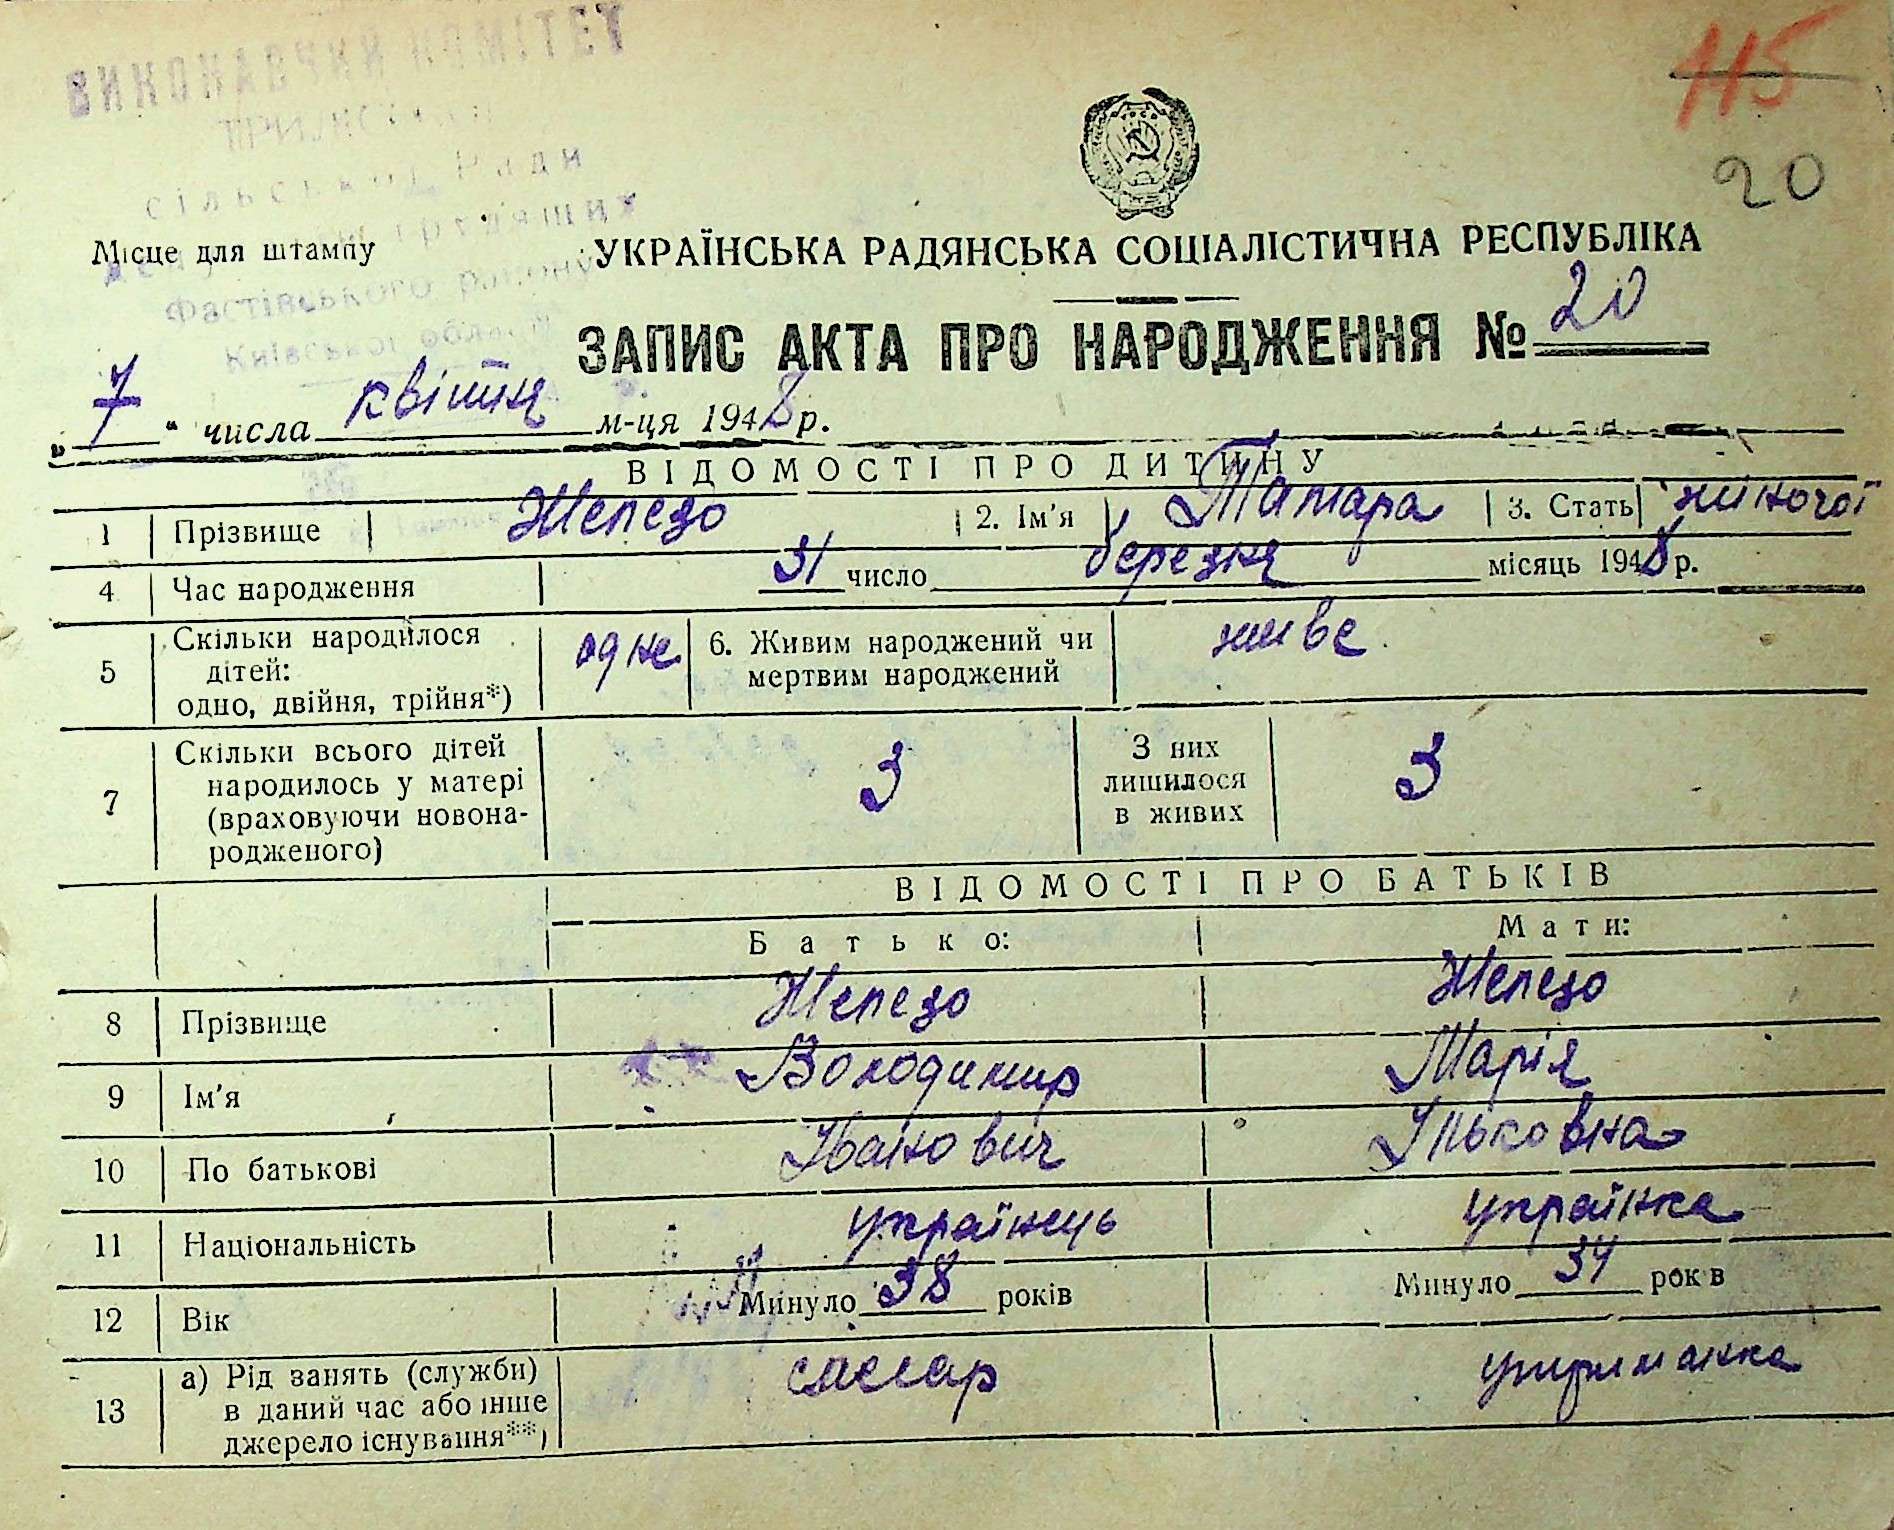 ВИКОНАВЧИЙ КОМІТЕТ
сільської Ради
депутатів трудящих
Фастівського району
Київської області
115
20
Місце для штампу
УКРАЇНСЬКА РАДЯНСЬКА СОЦІАЛІСТИЧНА РЕСПУБЛІКА
ЗАПИС АКТА ПРО НАРОДЖЕННЯ № 20
„ 7 “ числа квітня м-ця 1948 р.
ВІДОМОСТІ ПРО ДИТИНУ
1 Прізвище Железо 2. Ім'я Тамара 3. Стать жіночої
4 Час народження 31 число березня місяць 1948 р.
5 Скільки народилося дітей: одно, двійня, трійня*) одне 6. Живим народжений чи мертвим народжений живе
7 Скільки всього дітей народилось у матері (враховуючи новона-родженого) 3 З них лишилося в живих 3
ВІДОМОСТІ ПРО БАТЬКІВ
Батько: Мати:
8 Прізвище Железо Железо
9 Ім'я Володимир Марія
10 По батькові Іванович Ільковна
11 Національність українець українка
12 Вік Минуло 38 років Минуло 34 рок в
13 а) Рід занять (служби) в даний час або інше джерело існування**) слесар утриманка